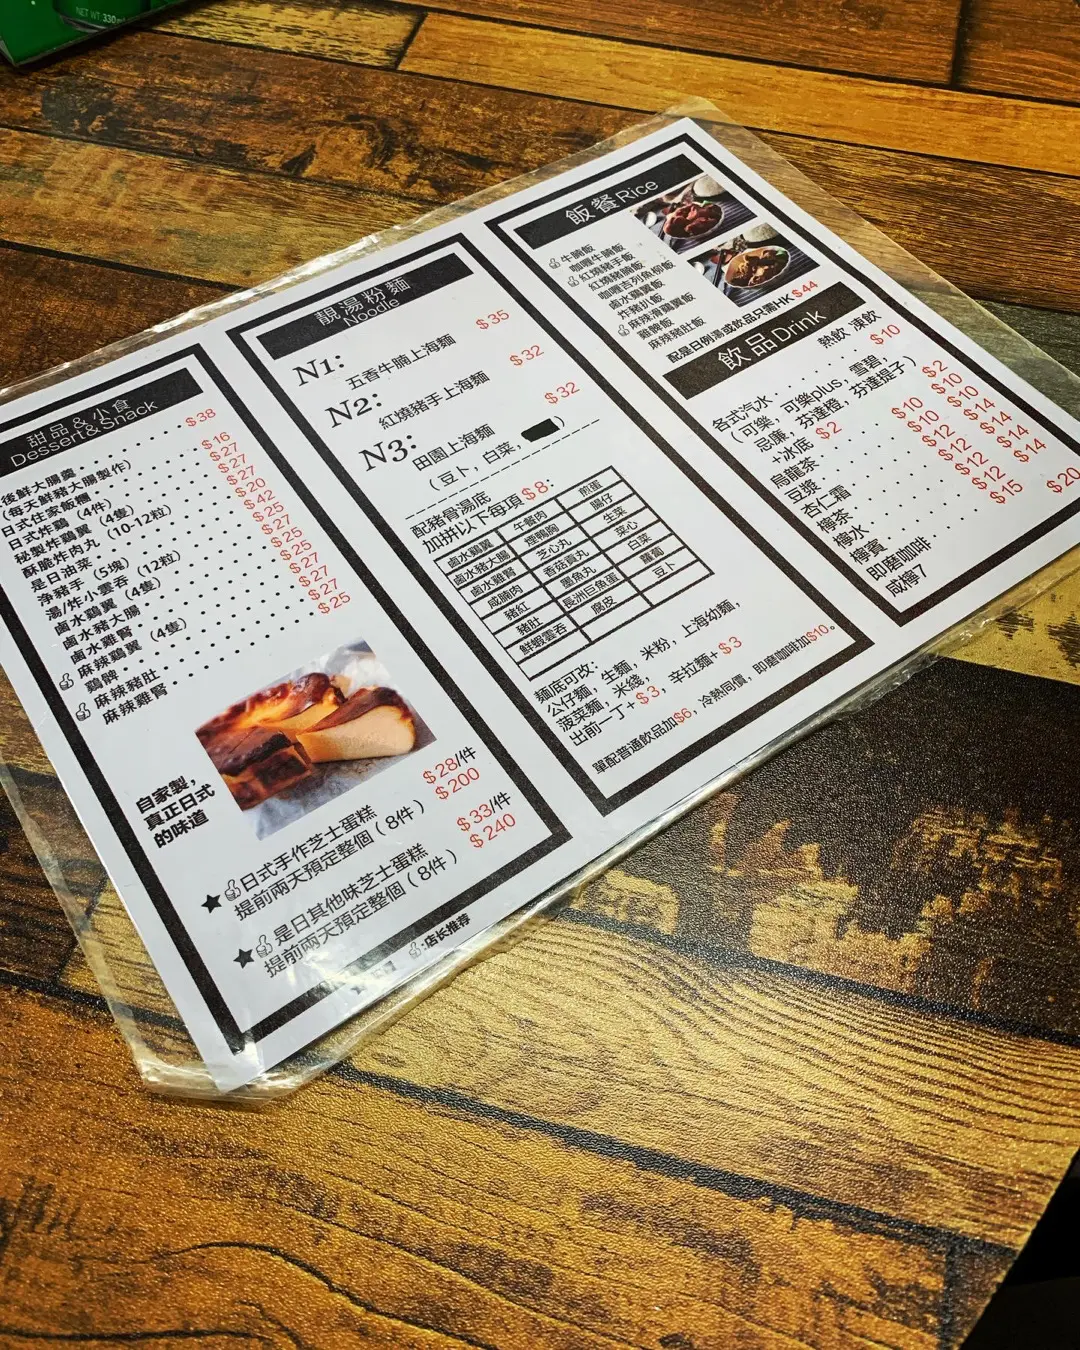 NET WT 330
甜品&小食
Dessert&Snack
後鮮大腸羹 $38
(每天鮮豬大腸製作)
日式住家飯糰 $16
日式炸雞 (4件) $27
秘製炸鷄翼 (4隻) $27
酥脆炸肉丸 (10-12粒) $20
是日油菜 $42
淨豬手 (5塊) $25
湯/炸小雲吞 (12粒) $27
鹵水鷄翼 (4隻) $25
鹵水豬大腸 $27
鹵水雞腎 $27
麻辣鷄翼 (4隻) $25
鷄髀
麻辣豬肚
麻辣雞腎
自家製,
真正日式
的味道
★日式手作芝士蛋糕 $28/件
提前兩天預定整個(8件) $200
★是日其他味芝士蛋糕 $33/件
提前兩天預定整個(8件) $240
:店长推荐
靚湯粉麵
Noodle
N1: $35
五香牛腩上海麵
N2: $32
紅燒豬手上海麵
N3: $32
田園上海麵
(豆卜,白菜, )
配豬骨湯底
加拼以下每項$8:
鹵水鷄翼 午餐肉 煎蛋
鹵水豬大腸 煙鴨胸 腸仔
鹵水雞腎 芝心丸 生菜
咸腩肉 香菇貢丸 菜心
豬紅 墨魚丸 白菜
豬肚 長洲巨魚蛋 蘿蔔
鮮蝦雲吞 腐皮 豆卜
麵底可改:
公仔麵,生麵,米粉,上海幼麵,
菠菜麵,米綫,
出前一丁+$3,辛拉麵+$3
單配普通飲品加$6,冷熱同價,即磨咖啡加$10。
飯餐Rice
牛腩飯
咖喱牛腩飯
紅燒豬手飯
紅燒豬腩飯
咖喱吉列魚柳飯
鹵水鷄翼飯
炸豬扒飯
麻辣滑鷄翼飯
雞髀飯
麻辣豬肚飯
配是日例湯或飲品只需HK$44
飲品Drink
熱飲 凍飲
各式汽水 $10
(可樂,可樂plus,雪碧,
忌廉,芬達橙,芬達提子)
+冰底 $2 $2
烏龍茶 $10 $10
豆漿 $10 $10
杏仁霜 $12 $14
檸茶 $12 $14
檸水 $12 $14
檸賓 $12 $14
即磨咖啡 $15 $20
咸檸7